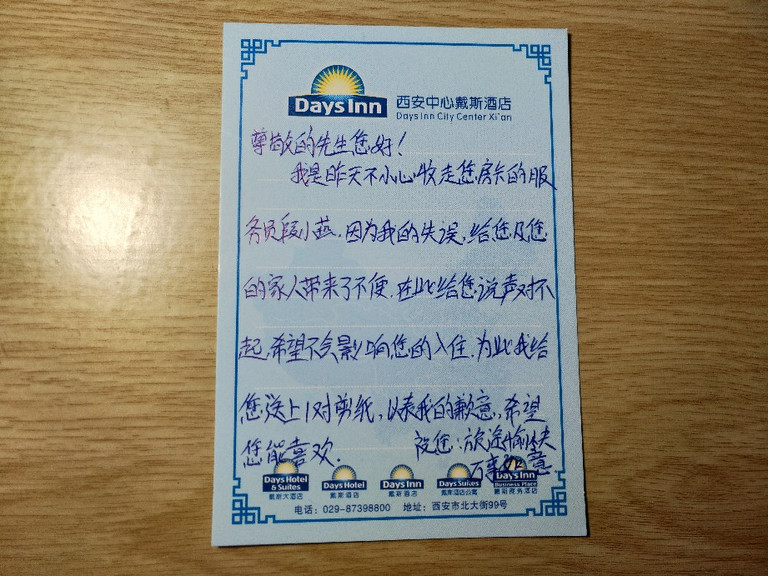 Days Inn
西安中心戴斯酒店
Days Inn City Center Xi'an
尊敬的先生您好!
我是昨天不小心收走您房卡的服
务员段小燕.因为我的失误,给您及您
的家人带来了不便.在此给您说声对不
起,希望不会影响您的入住.为此我给
您送上1对剪纸,以表我的歉意,希望
您能喜欢.
祝您:旅途愉快
万事如意
Days Hotel & Suites
戴斯大酒店
Days Hotel
戴斯酒店
Days Inn
戴斯酒店
Days Suites
戴斯酒店公寓
Days Inn
Business Place
戴斯商务酒店
电话:029-87398800 地址:西安市北大街99号